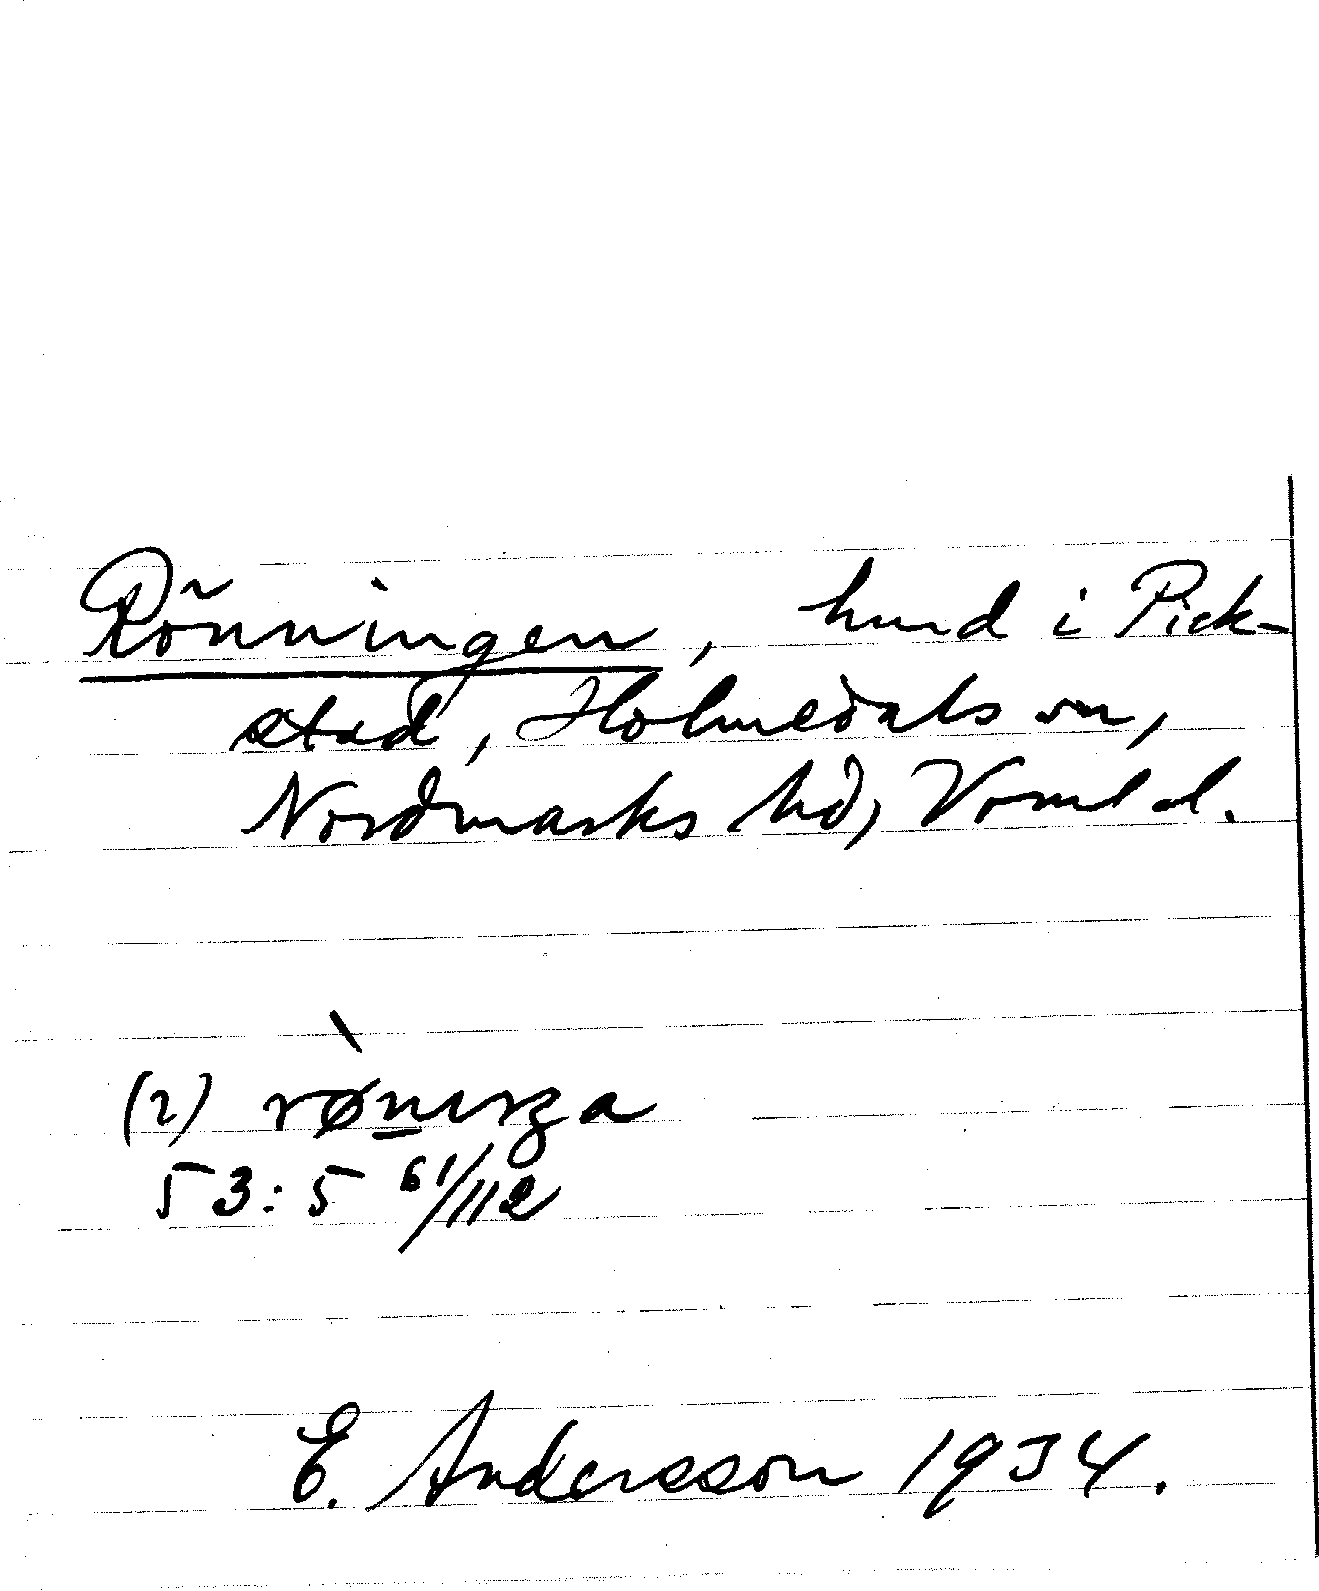 Rönningen, hmd i Pick-
stad, Holmedals sn,
Nordmarks hd, Vrml d.
(2)
53:5 61/112
E. Andersson 1934.